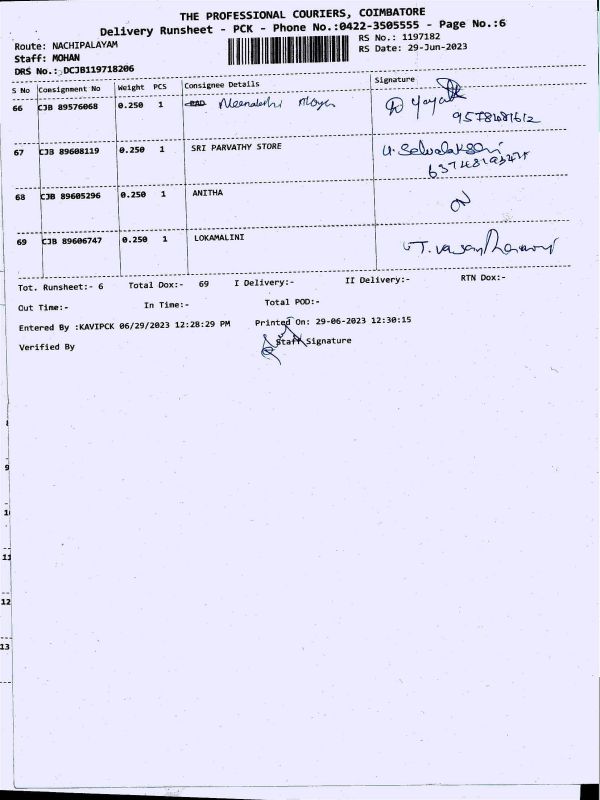 THE PROFESSIONAL COURIERS, COIMBATORE
Delivery Runsheet - PCK - Phone No.:0422-3505555 - Page No.:6
Route: NACHIPALAYAM
RS No.: 1197182
Staff: MOHAN
RS Date: 29-Jun-2023
DRS No.: DCJB119718206
S No Consignment No Weight PCS Consignee Details Signature
66 CJB 89576068 0.250 1
67 CJB 89608119 0.250 1 SRI PARVATHY STORE
68 CJB 89605296 0.250 1 ANITHA
69 CJB 89606747 0.250 1 LOKAMALINI
Tot. Runsheet:- 6 Total Dox:- 69 I Delivery:- II Delivery:- RTN Dox:-
Out Time:- In Time:- Total POD:-
Entered By :KAVIPCK 06/29/2023 12:28:29 PM Printed On: 29-06-2023 12:30:15
Verified By Staff Signature
9
11
12
13